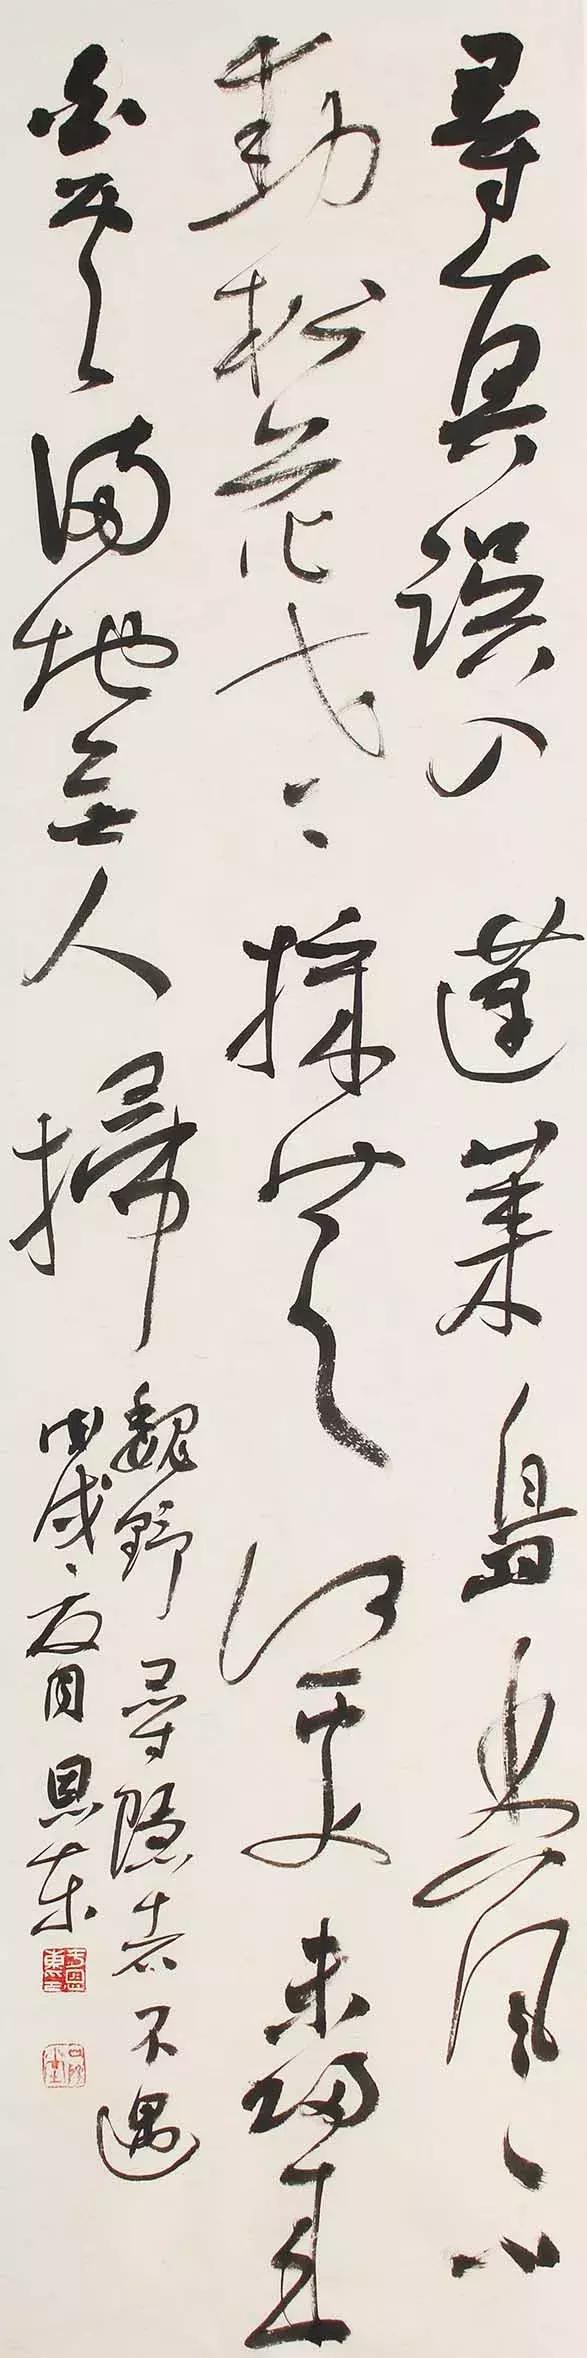 尋真誤入蓬萊島香風不
動松花老採芝何處未歸來
白雲滿地無人掃
魏野尋隱者不遇
戊戌夏月恩東